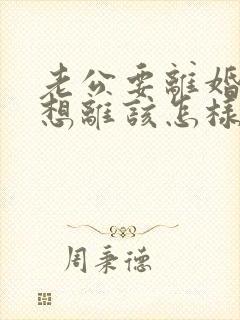 老公要離婚
想離該怎樣
周秉德